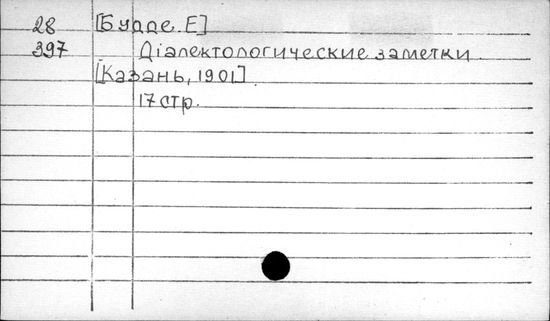 28 [Будде. Е]
397 Діалектологические заметки.
[Казань, 1901]
17 стр.